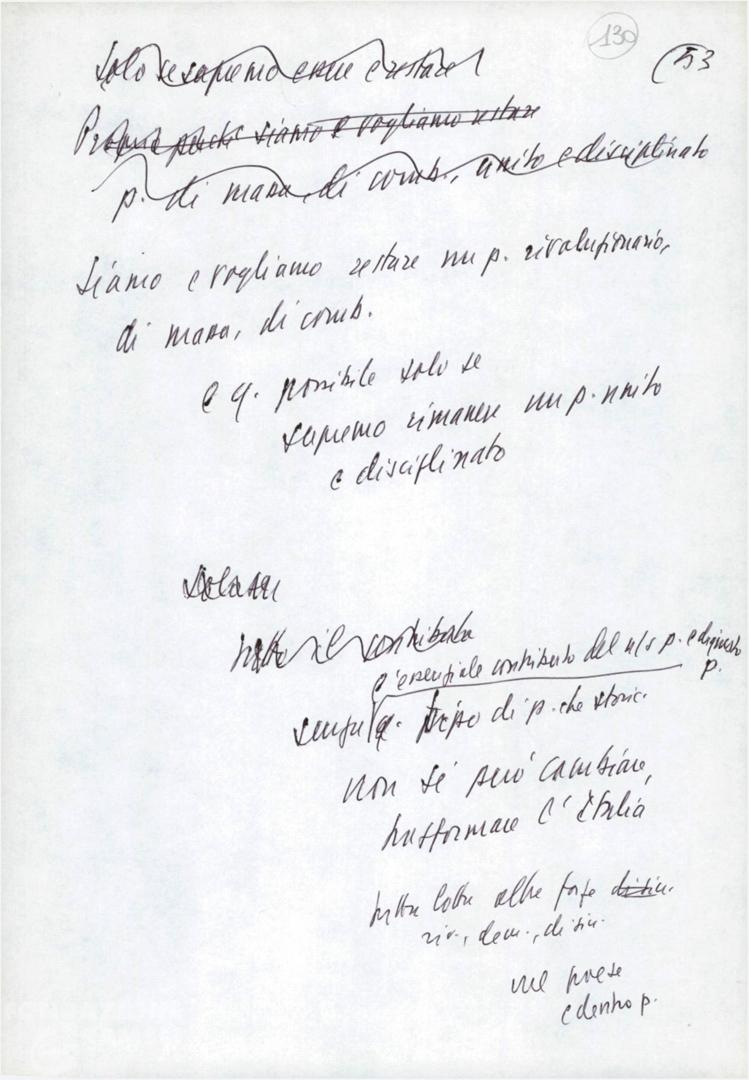 130
53
Solo se sapremo essere e restare
Proprio perché siamo e vogliamo restare
p. di massa, di comb., unito e disciplinato
Siamo e vogliamo restare un p. rivoluzionario,
di massa, di comb.
e q. possibile solo se
sapremo rimanere un p. unito
e disciplinato
tutto il contributo
l'essenziale contributo del n/s p. e di questo
p.
senza q. tipo di p. che storic.
non si può cambiare,
trasformare l'Italia
altre forze di sin.
riv., dem., di sin.
nel paese
e dentro p.